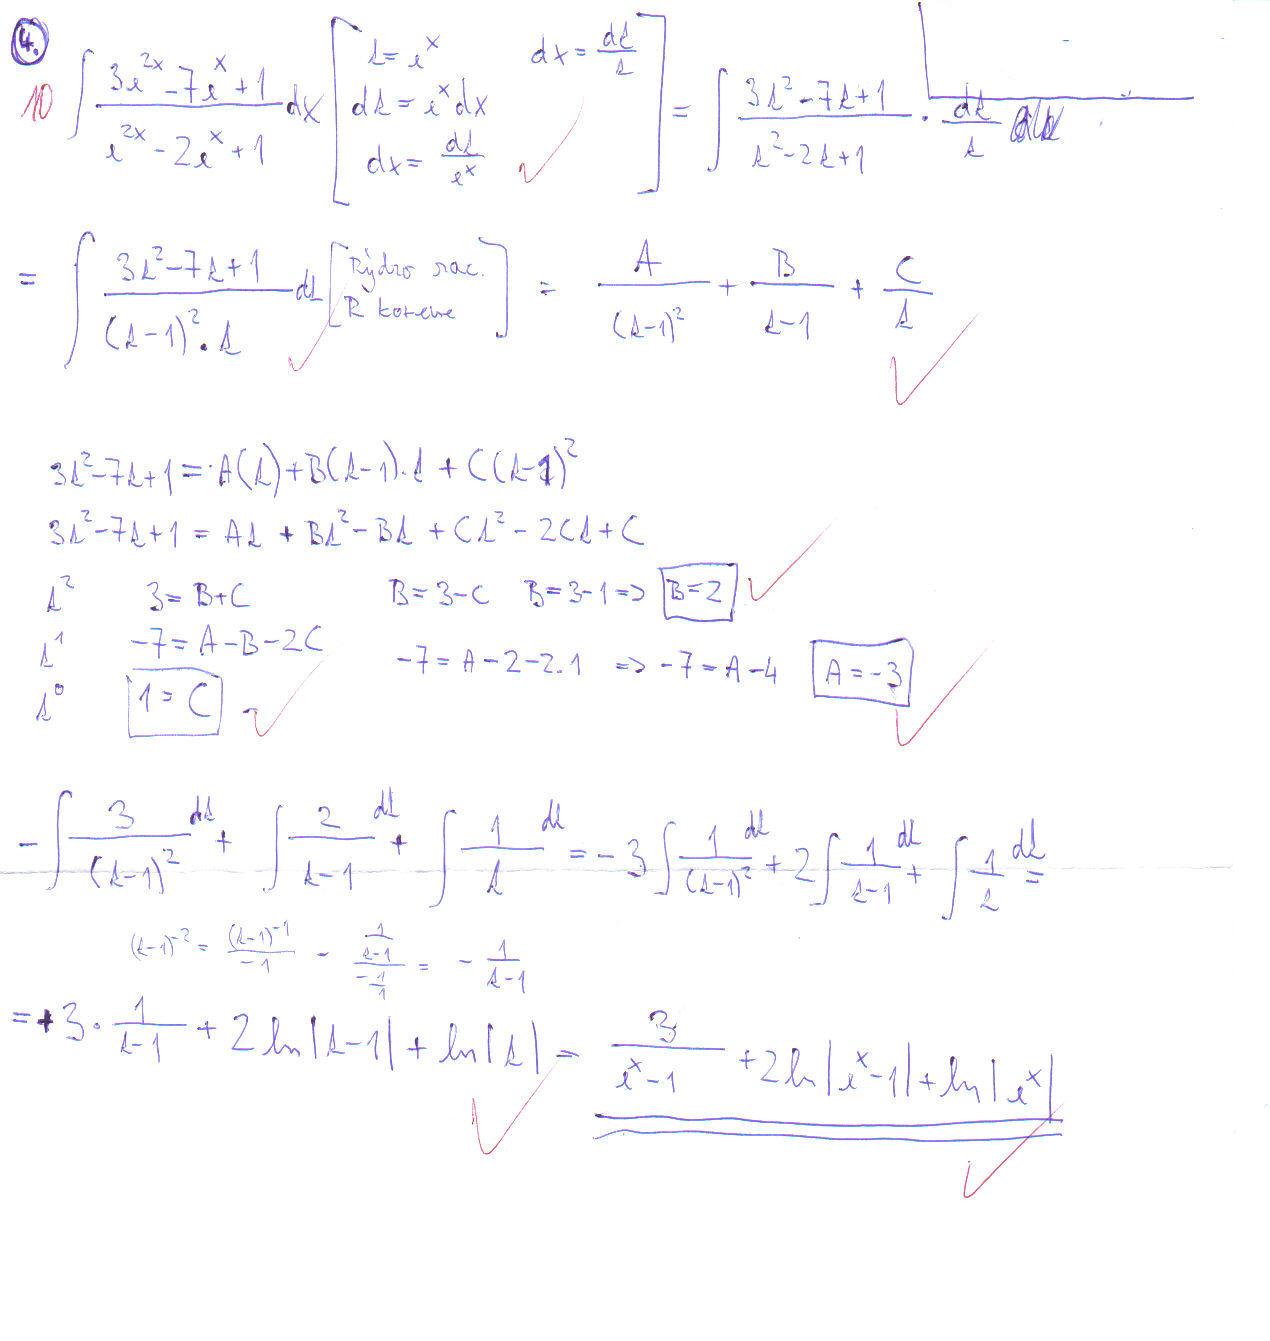 4.
10 ∫ (3e^{2x} - 7e^x + 1)/(e^{2x} - 2e^x + 1) dx [ t = e^x dx = dt/t dt = e^x dx dx = dt/e^x ] = ∫ (3t² - 7t + 1)/(t² - 2t + 1) · dt/t
= ∫ (3t² - 7t + 1)/((t-1)² · t) dt [ Rýdzo rac. R korene ] = A/(t-1)² + B/(t-1) + C/t
3t² - 7t + 1 = A(t) + B(t-1).t + C(t-1)²
3t² - 7t + 1 = At + Bt² - Bt + Ct² - 2Ct + C
t² 3 = B+C B = 3-C B = 3-1 => B = 2
t¹ -7 = A - B - 2C -7 = A - 2 - 2.1 => -7 = A - 4 A = -3
t⁰ 1 = C
- ∫ 3/(t-1)² dt + ∫ 2/(t-1) dt + ∫ 1/t dt = -3 ∫ 1/(t-1)² dt + 2 ∫ 1/(t-1) dt + ∫ 1/t dt =
(t-1)^{-2} = (t-1)^{-1}/-1 - (1/(t-1))/(-1/1) = - 1/(t-1)
= +3 · 1/(t-1) + 2 ln|t-1| + ln|t| = 3/(e^x - 1) + 2 ln|e^x - 1| + ln|e^x|